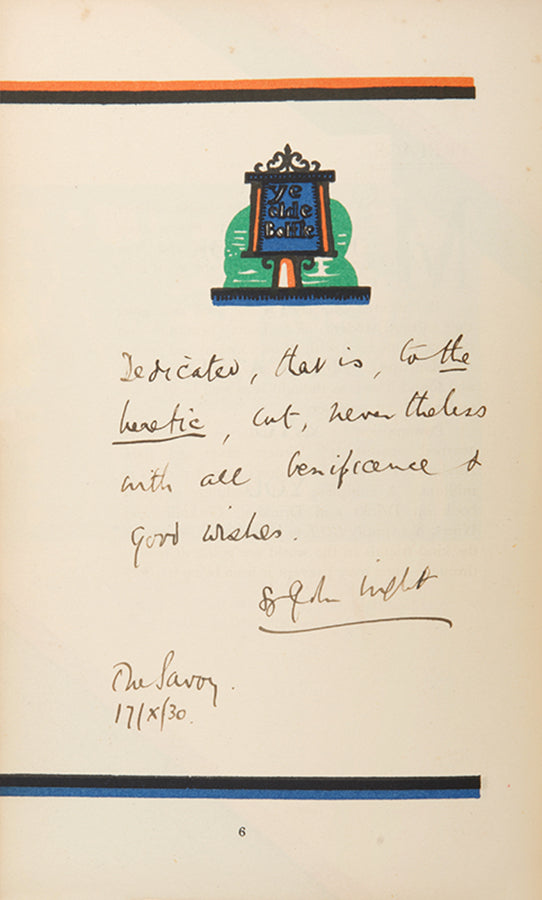 ye
olde
Bottle
Dedicated, that is, to the
heretic, but, nevertheless
with all benificence &
good wishes.
John
The Savoy.
17/X/30.
6